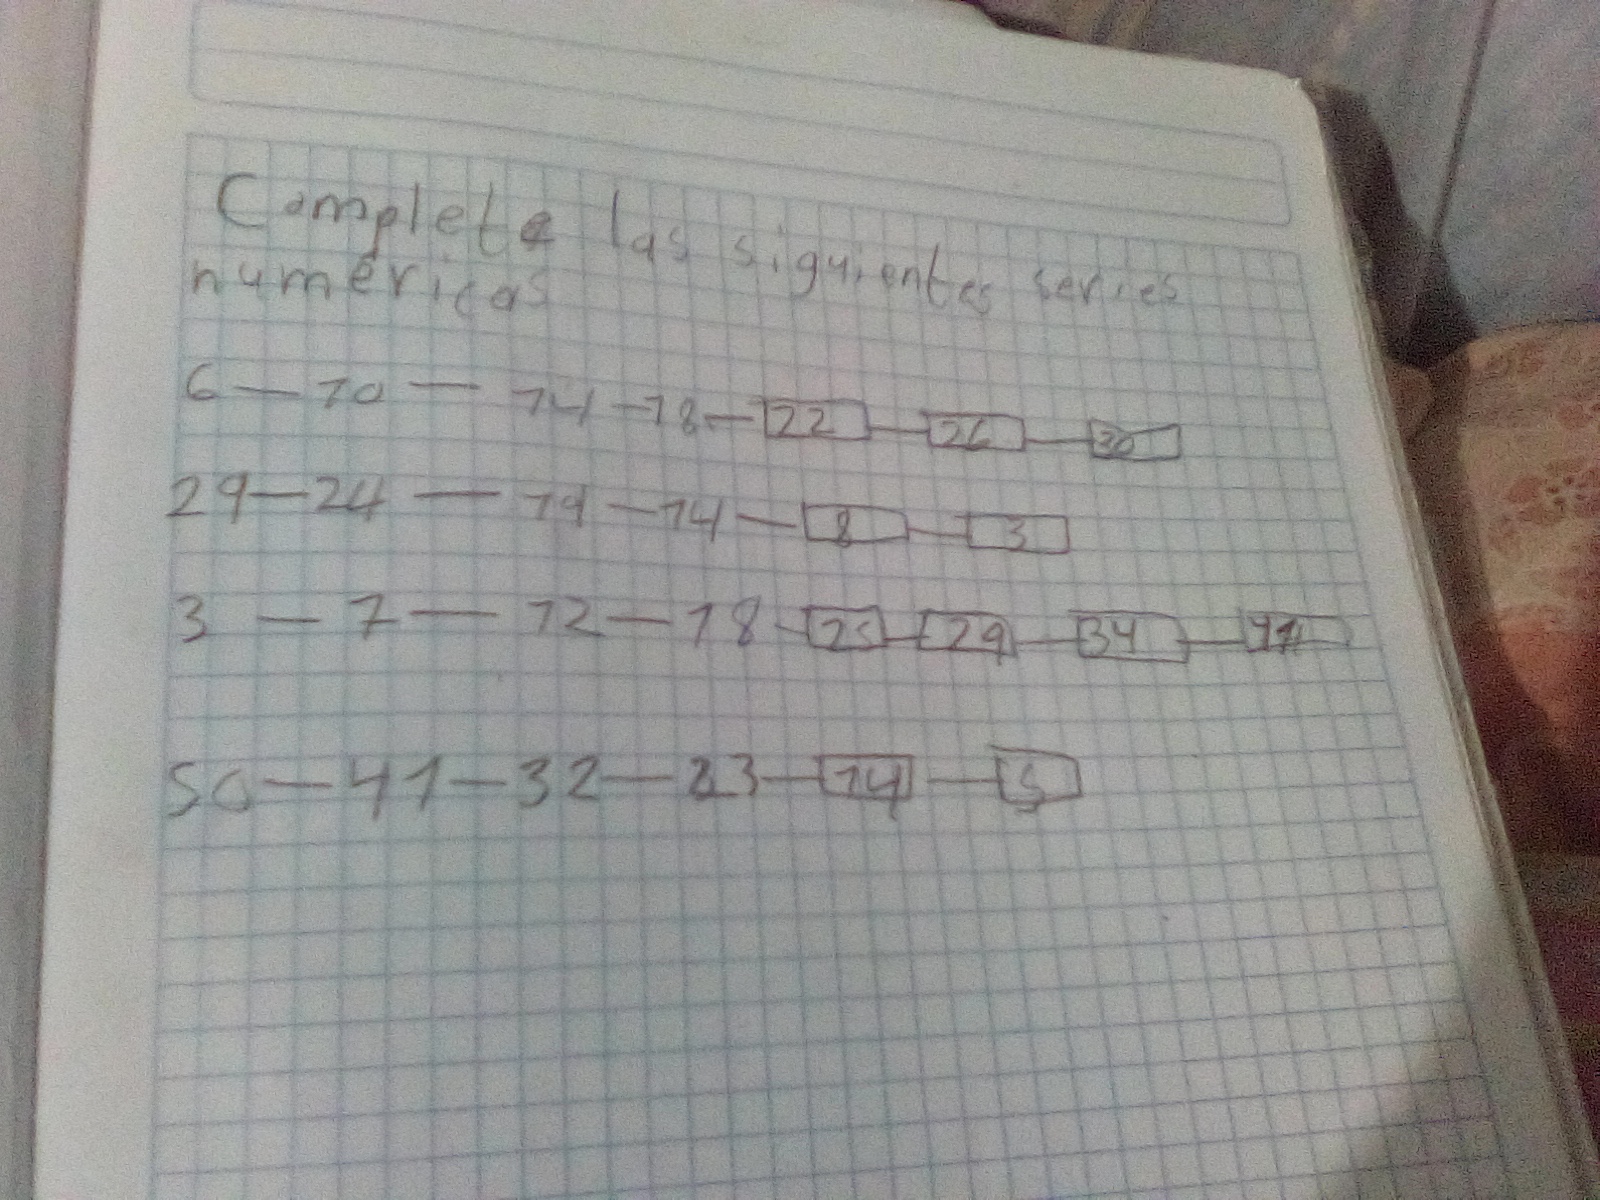 Complete las siguientes series
numéricas
6 — 10 — 14 — 18 — 22 — 26 — 30
29 — 24 — 19 — 14 — 8 — 3
3 — 7 — 12 — 18 — 25 — 29 — 34
50 — 41 — 32 — 23 — 14 — 5